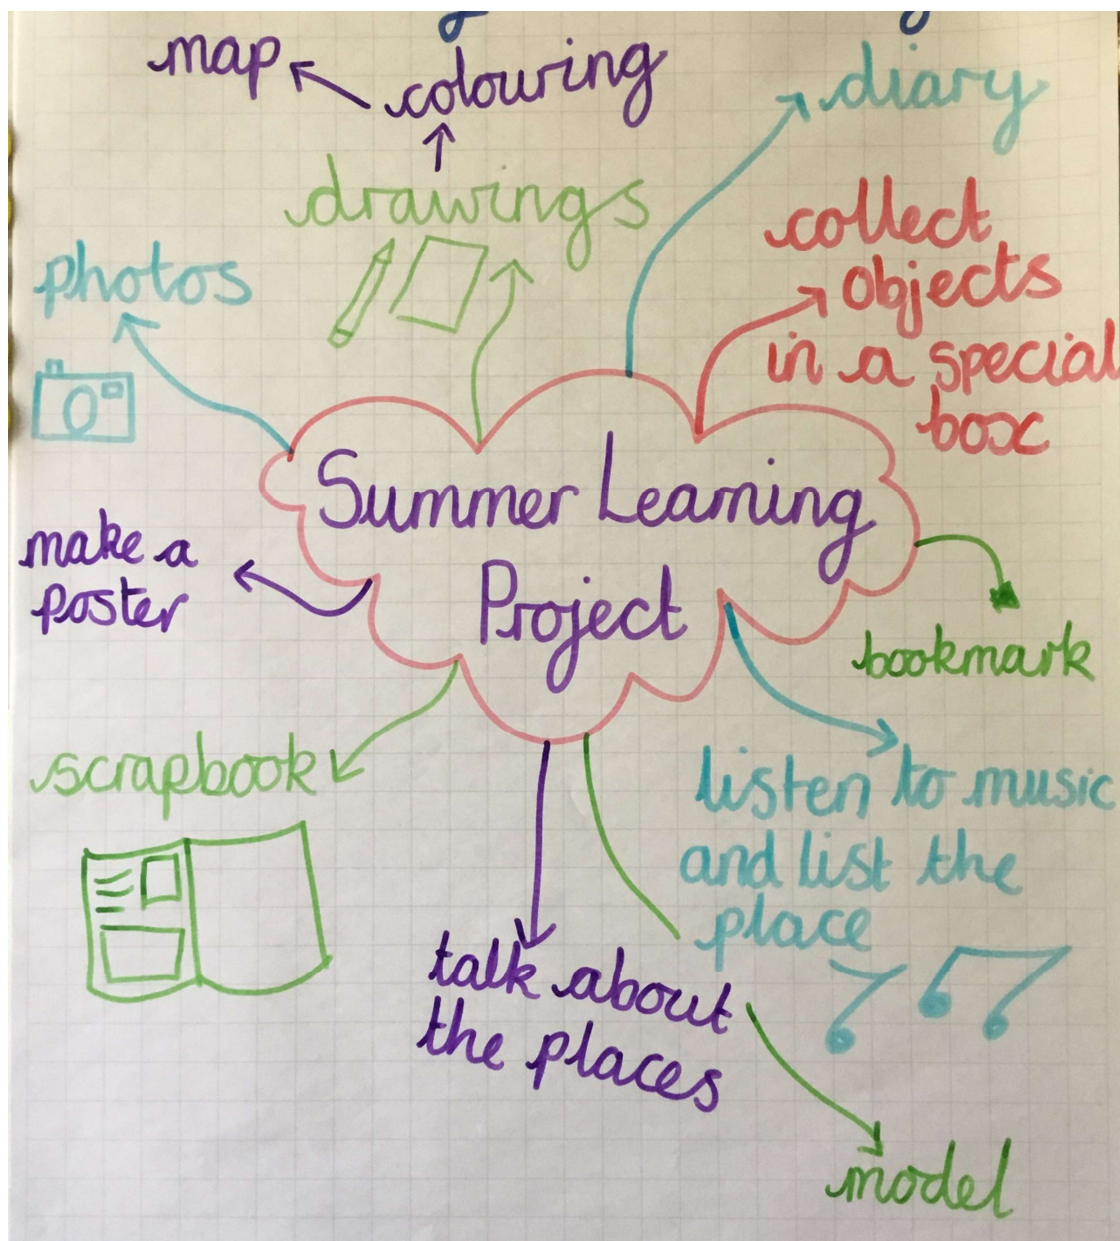 map
colouring
diary
drawings
collect
objects
in a special
box
photos
Summer Learning
Project
make a
poster
bookmark
scrapbook
listen to music
and list the
place
talk about
the places
model